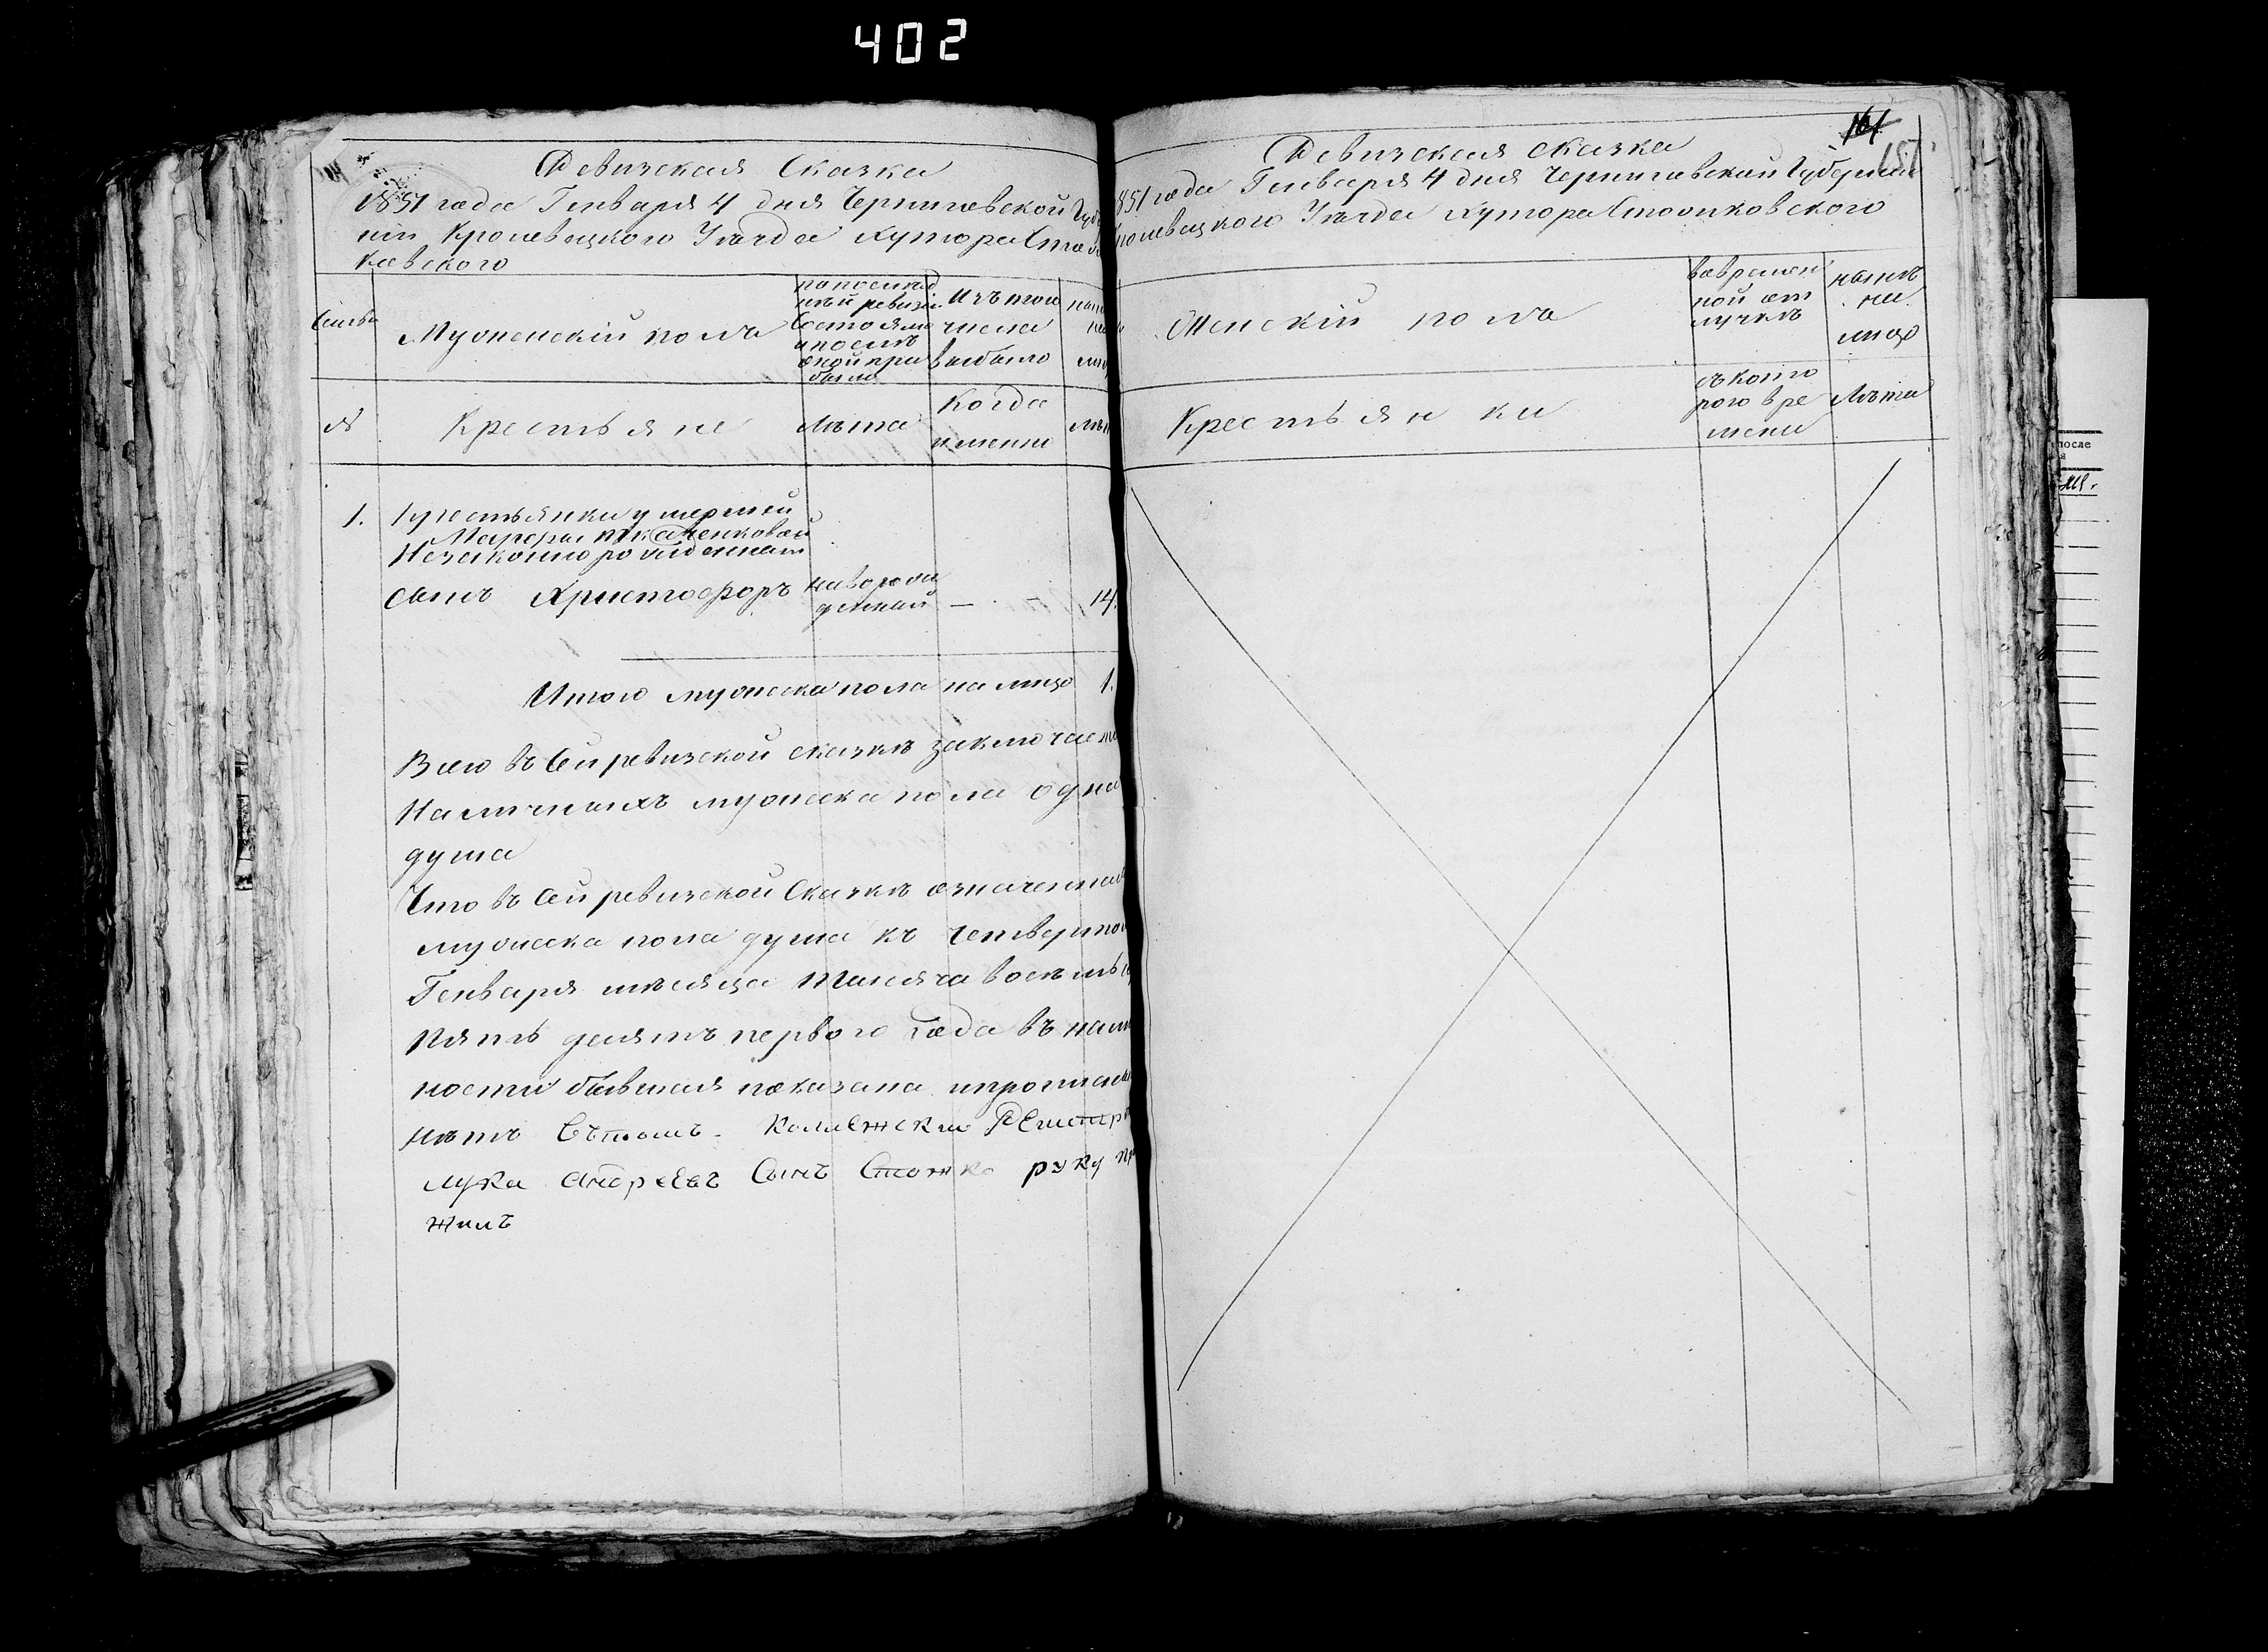 402
Ревизская Сказка
1851 года Генваря 4 дня Черниговской Губер
нии Кролевецкого Уѣзда Хутора
ковского
Семьи
Мужескій полъ
по послед
ней ревизіи
Состояло
и послѣ
оной при
было
Изъ того
числа
выбыло
№
Крестьяне
Лѣта
Когда
имянно
лѣта
1.
Крестьянки умершей
Ткаченковой
Незаконно рожденный
Сынъ Христофоръ
новорож
денный
—
14.
Итого мужеска пола на лицо 1.
Всего въ Сей ревизской сказкѣ заключается
Наличныхъ мужеска пола одна
душа
Что въ Сей ревизской Сказкѣ означенная
мужеска пола душа къ четвертому
Генваря мѣсяца тысяча восемьсот
пять десятъ первого Года въ налич
ности бывшая показана и прописныхъ
нѣтъ Въ томъ. Колежский Регистра
лука андреевъ Сынъ Стожко руку при
жилъ
161
151
Ревизская сказка
1851 года Генваря 4 дня Черниговской Губернии
Кролевецкого Уѣзда Хутора Стожковского
Женскій полъ
во времен
ной от
лучкѣ
налицо
Крестьянки
съ кото
рого вре
мени
Лѣта
после